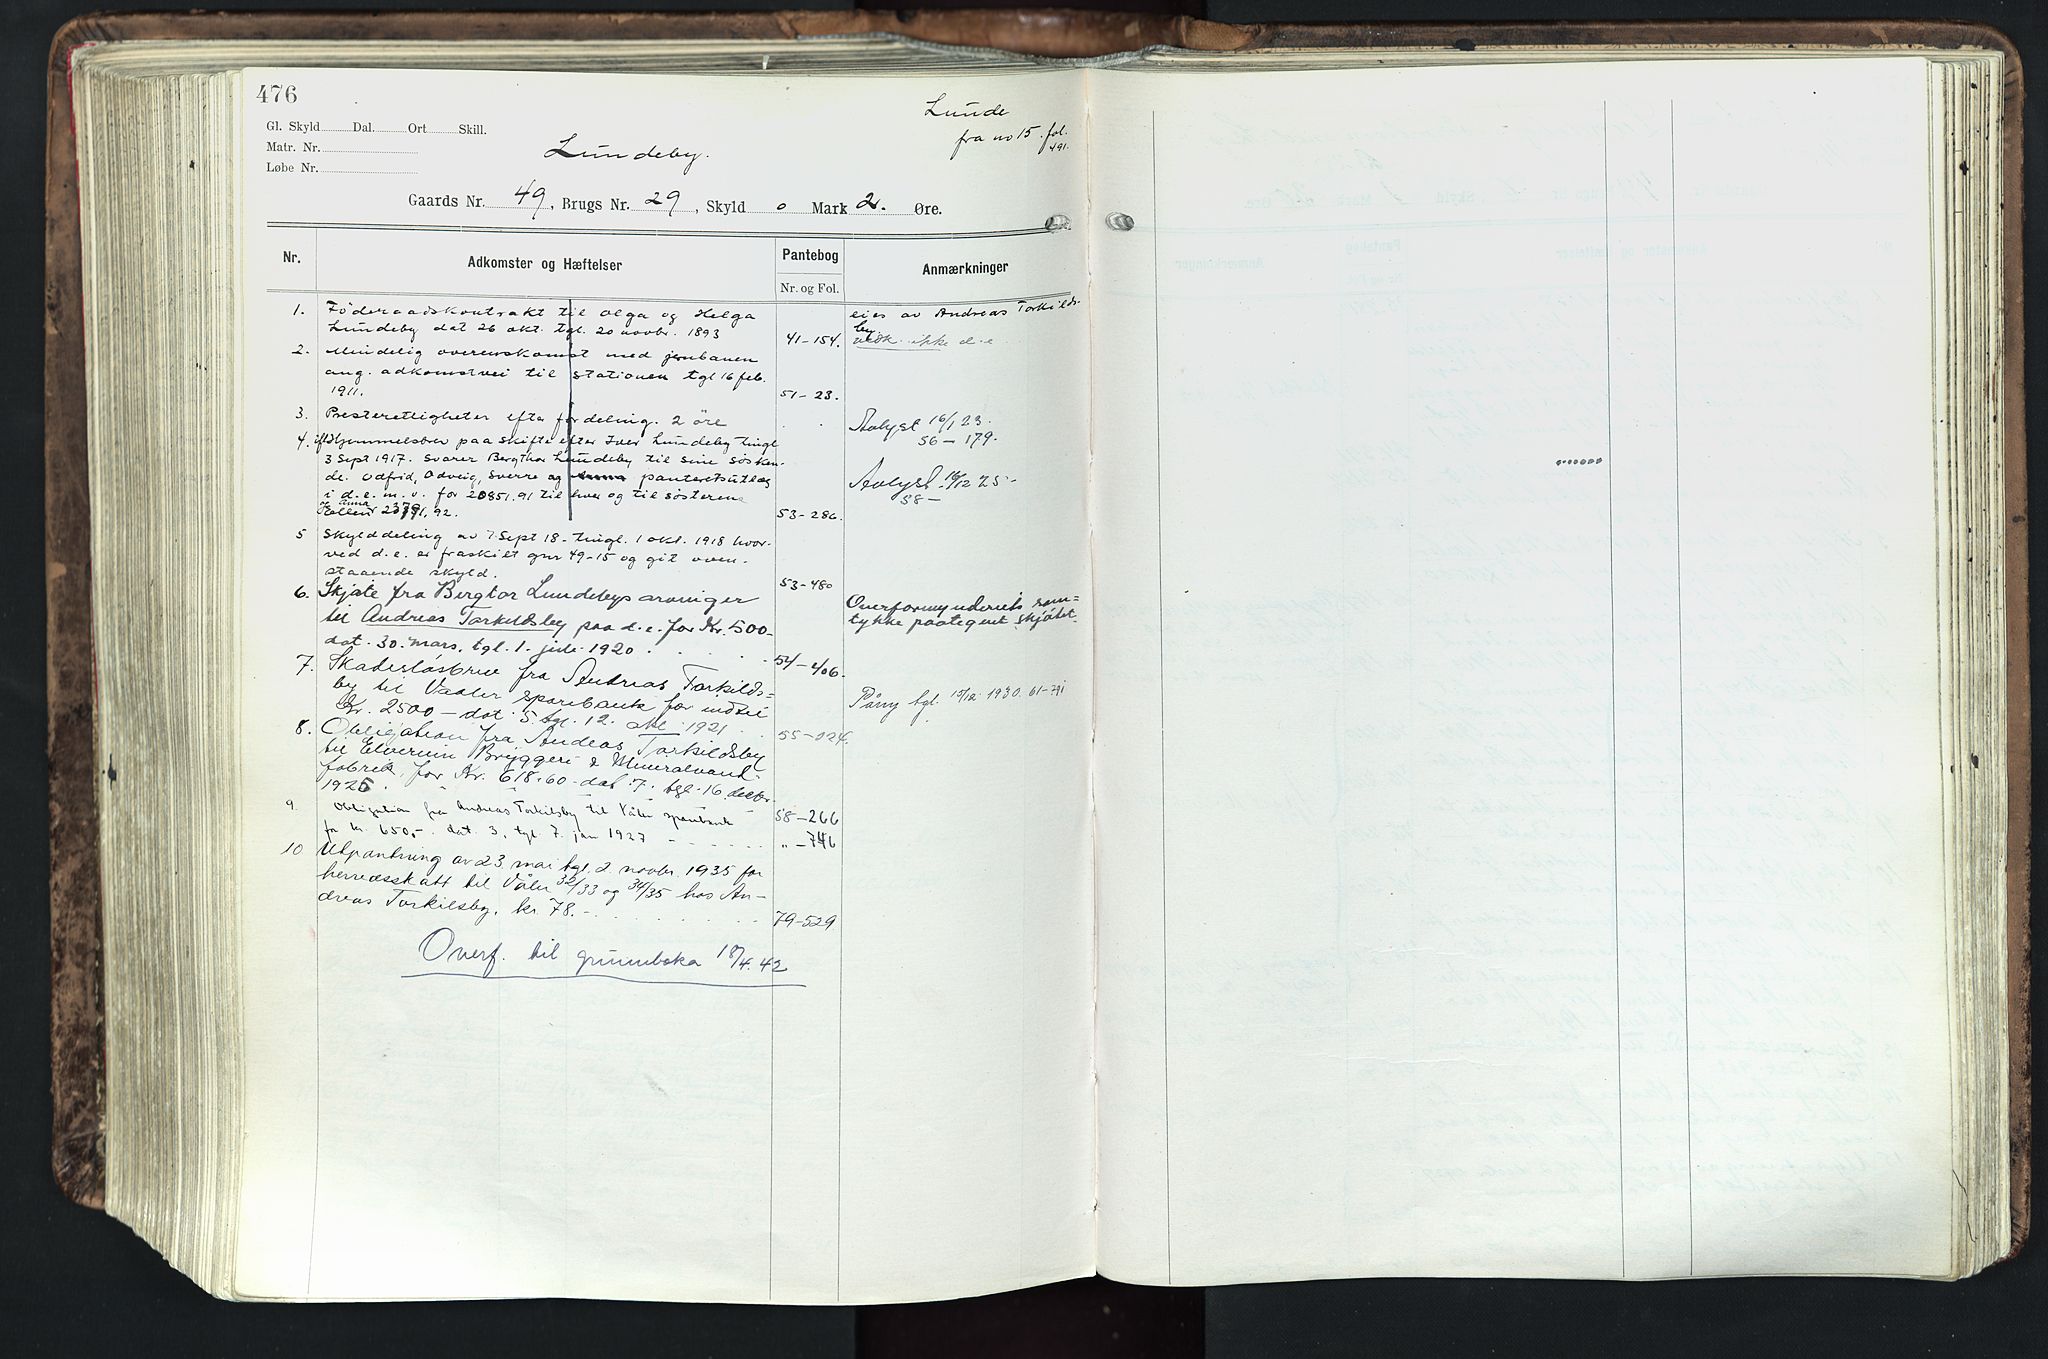 476
Lunde
fra no 15. fol.
491.
Gl. Skyld Dal. Ort Skill.
Matr. Nr.
Løbe Nr.
Lundeby.
Gaards Nr. 49, Brugs Nr. 29, Skyld 0 Mark 2. Øre.
Nr.
Adkomster og Hæftelser
Pantebog
Nr. og Fol.
Anmærkninger
1. Föderaadskontrakt til Olga og Helga
Lundeby dat 26 okt. tgl. 20 novbr. 1893 41-154.
eies av Andreas Torkilds-
by
vedk. ikke d.e.
2. Mindelig overenskomst med jernbanen
ang. adkomstvei til stationen tgl 16 feb.
1911. 51-23.
3. Presterettigheter efter fordeling. 2 öre
Avlyst 16/1 23.
56-179.
4. ifl Hjemmelsbrev paa skifte efter Iver Lundeby tingl
3 Sept 1917. svarer Bergthor Lundeby til sine søsken-
de. Odfrid, Odveig, Sverre og panteretsutlæg
i d.e. m.v. for 20851.91 til hver og til søsterene
og Anna
Ellen 2379.92. 53-286.
Avlyst 16/12 25.-
58-
5 Skylddeling av 7 Sept 18- tingl. 1 okt. 1918 hvor-
ved d.e. er fraskilt gnr 49-15 og git oven-
staaende skyld. 53-480
6. Skjøte fra Bergtor Lundebys arvinger
til Andreas Torkildsby paa d.e. for Kr. 500-
dat. 30. mars, tgl. 1. juli 1920 54-406.
Overformynderiets sam=
tykke paategnet skjøtet.
7. Skadesløsbrev fra Andreas Torkilds=
by til Vaaler sparebank for indtil
Kr. 2500- dat. 5. tgl. 12. okt. 1921 55-224.
Påny tgl. 15/12 1930. 61-791
8. Obligation fra Andreas Torkildsby
til Elverum Bryggeri & Mineralvand-
fabrik, for Kr. 618.60- dat. 7. tgl. 16. decbr.
1925. 58-266
9. Obligation fra Andreas Torkilsby til Våler sparebank
for kr. 650,-. dat. 3, tgl. 7. jan 1927 " -746
10 Utpantning av 23 mai tgl. 2. novbr. 1935 for
herredsskatt til Våler 32/33 og 34/35 hos An-
dreas Torkilsby. kr. 78.- 79-529
Overf. til grunnboka 18/4. 42